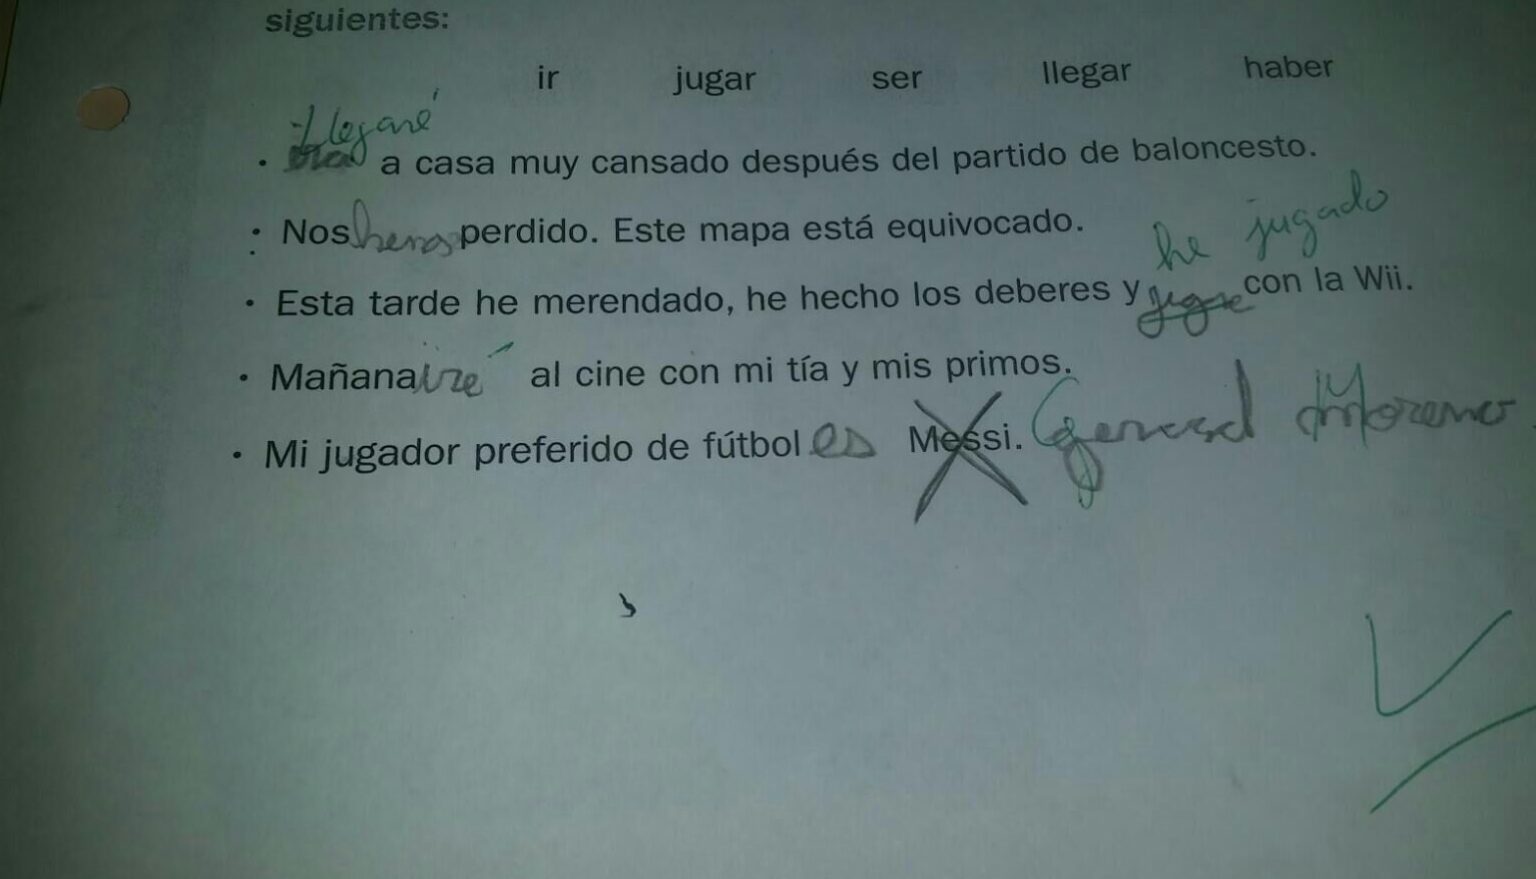 siguientes:
ir jugar ser llegar haber
Llegaré
• a casa muy cansado después del partido de baloncesto.
• Nos hemos perdido. Este mapa está equivocado.
he jugado
• Esta tarde he merendado, he hecho los deberes y jugue con la Wii.
• Mañana iré al cine con mi tía y mis primos.
• Mi jugador preferido de fútbol es Messi. Gerard Moreno